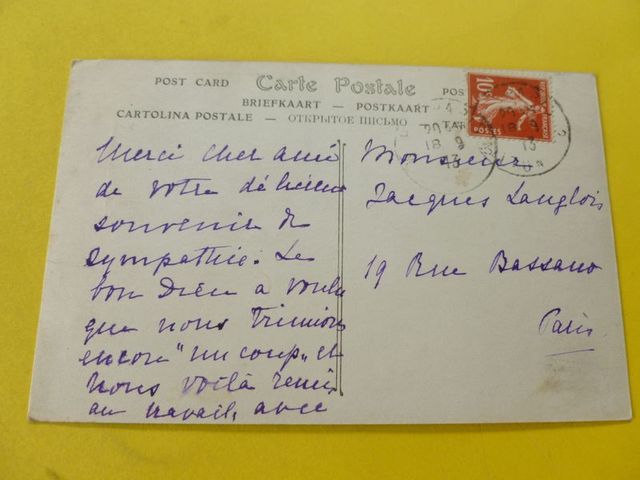 POST CARD Carte Postale POS
BRIEFKAART — POSTKAART
CARTOLINA POSTALE — ОТКРЫТОЕ ПІСЬМО
10c
POSTES
20
18 9
13
18 9
13
Merci cher ami
de votre délicieux
souvenir de
sympathie. Le
bon Dieu a voulu
que nous trimions
encore "un coup" et
nous voilà remis
au travail, avec
Monsieur
Jacques Langlois
19 Rue Bassano
Paris